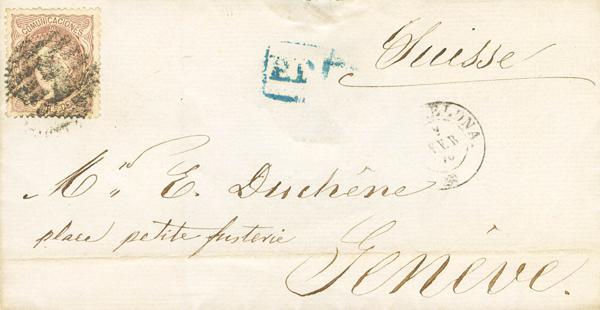 COMUNICACIONES
Suisse
ELONA
FEB
Mr. E. Duchêne
place petite fusterie
Genève.